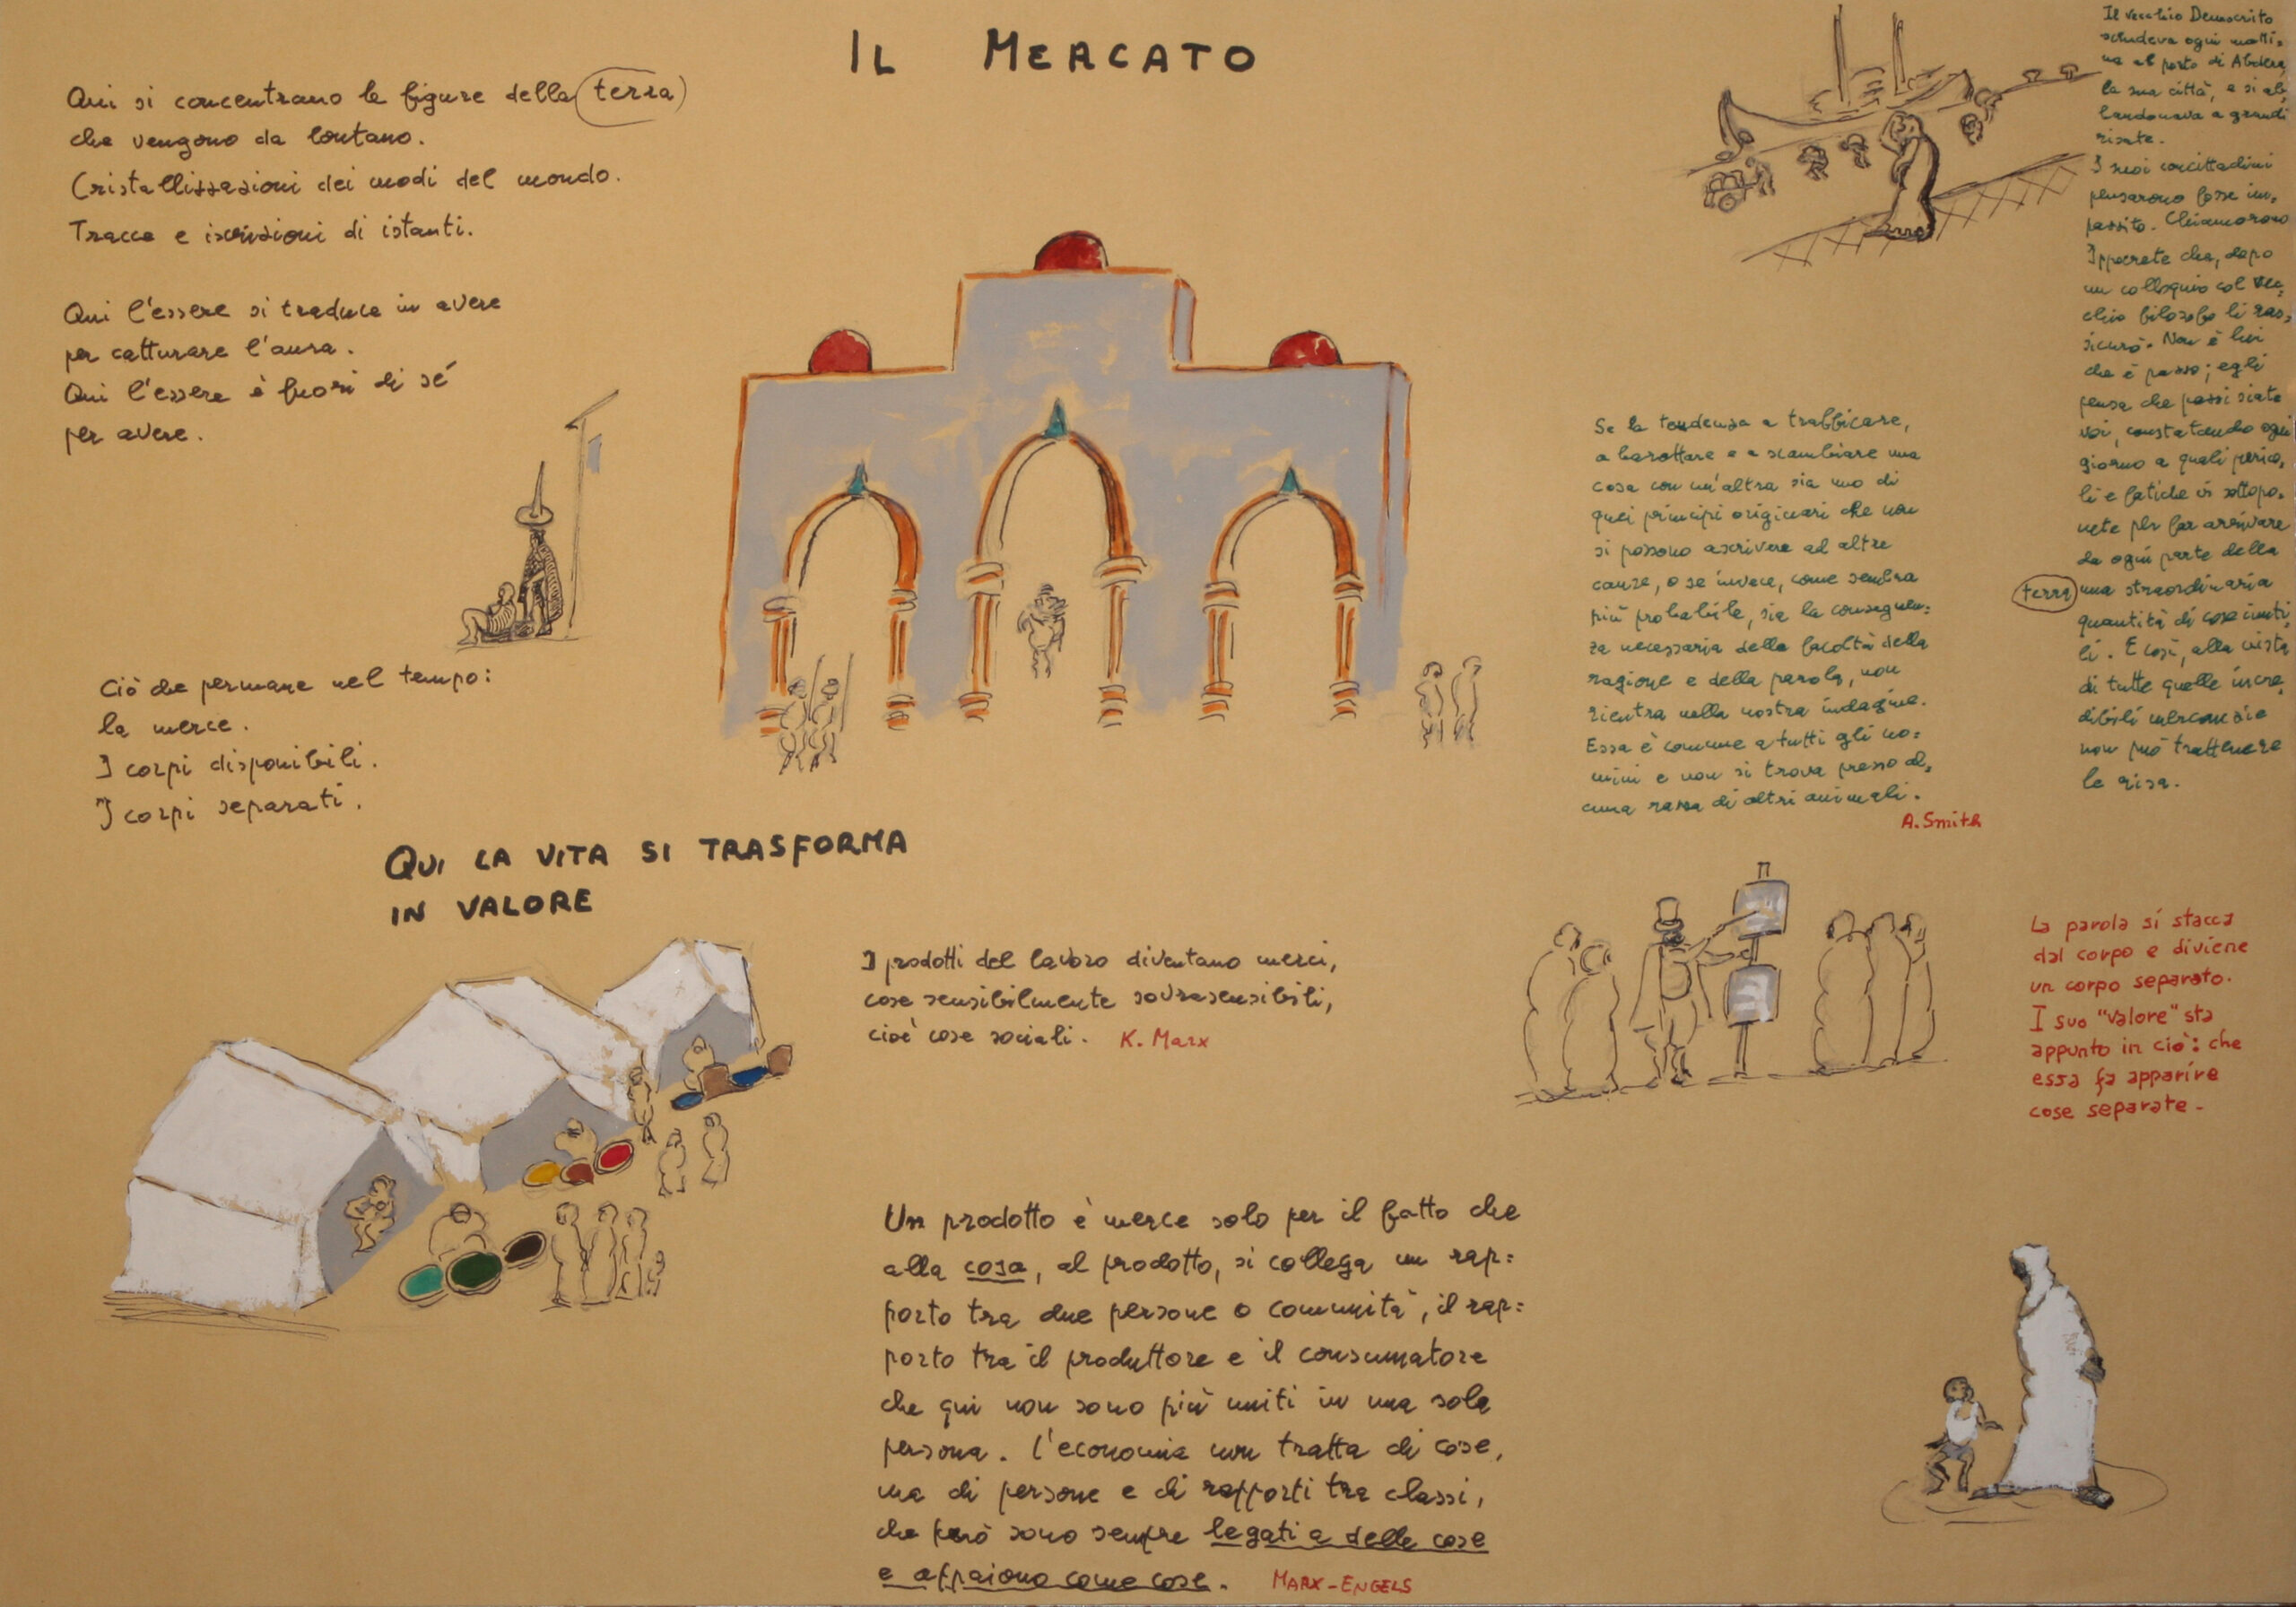 IL MERCATO
Qui si concentrano le figure della terra
che vengono da lontano.
Cristallizzazioni dei modi del mondo.
Tracce e iscrizioni di istanti.
Qui l'essere si traduce in avere
per catturare l'aura.
Qui l'essere è fuori di sé
per avere.
Ciò che permane nel tempo:
la merce.
I corpi disponibili.
I corpi separati.
QUI LA VITA SI TRASFORMA
IN VALORE
I prodotti del lavoro diventano merci,
cose sensibilmente sovrasensibili,
cioè cose sociali. K. Marx
Un prodotto è merce solo per il fatto che
alla cosa, al prodotto, si collega un rap=
porto tra due persone o comunità, il rap=
porto tra il produttore e il consumatore
che qui non sono più uniti in una sola
persona. L'economia non tratta di cose,
ma di persone e di rapporti tra classi,
che però sono sempre legati a delle cose
e appaiono come cose. MARX-ENGELS
Se la tendenza a trafficare,
a barattare e a scambiare una
cosa con un'altra sia uno di
quei principi originari che non
si possono ascrivere ad altre
cause, o se invece, come sembra
più probabile, sia la conseguen=
za necessaria delle facoltà della
ragione e della parola, non
rientra nella nostra indagine.
Essa è comune a tutti gli uo=
mini e non si trova presso al=
cuna razza di altri animali.
A. Smith
Il vecchio Democrito
scendeva ogni matti=
na al porto di Abdera,
la sua città, e si ab=
bandonava a grandi
risate.
I suoi concittadini
pensarono fosse im=
pazzito. Chiamarono
Ippocrate che, dopo
un colloquio col vec=
chio filosofo li ras=
sicurò. Non è lui
che è pazzo; egli
pensa che pazzi siate
voi, constatando ogni
giorno a quali perico=
li e fatiche vi sottopo=
nete per far arrivare
da ogni parte della
terra una straordinaria
quantità di cose inuti=
li. E così, alla vista
di tutte quelle incre=
dibili mercanzie
non può trattenere
le risa.
La parola si stacca
dal corpo e diviene
un corpo separato.
I suo "valore" sta
appunto in ciò: che
essa fa apparire
cose separate.